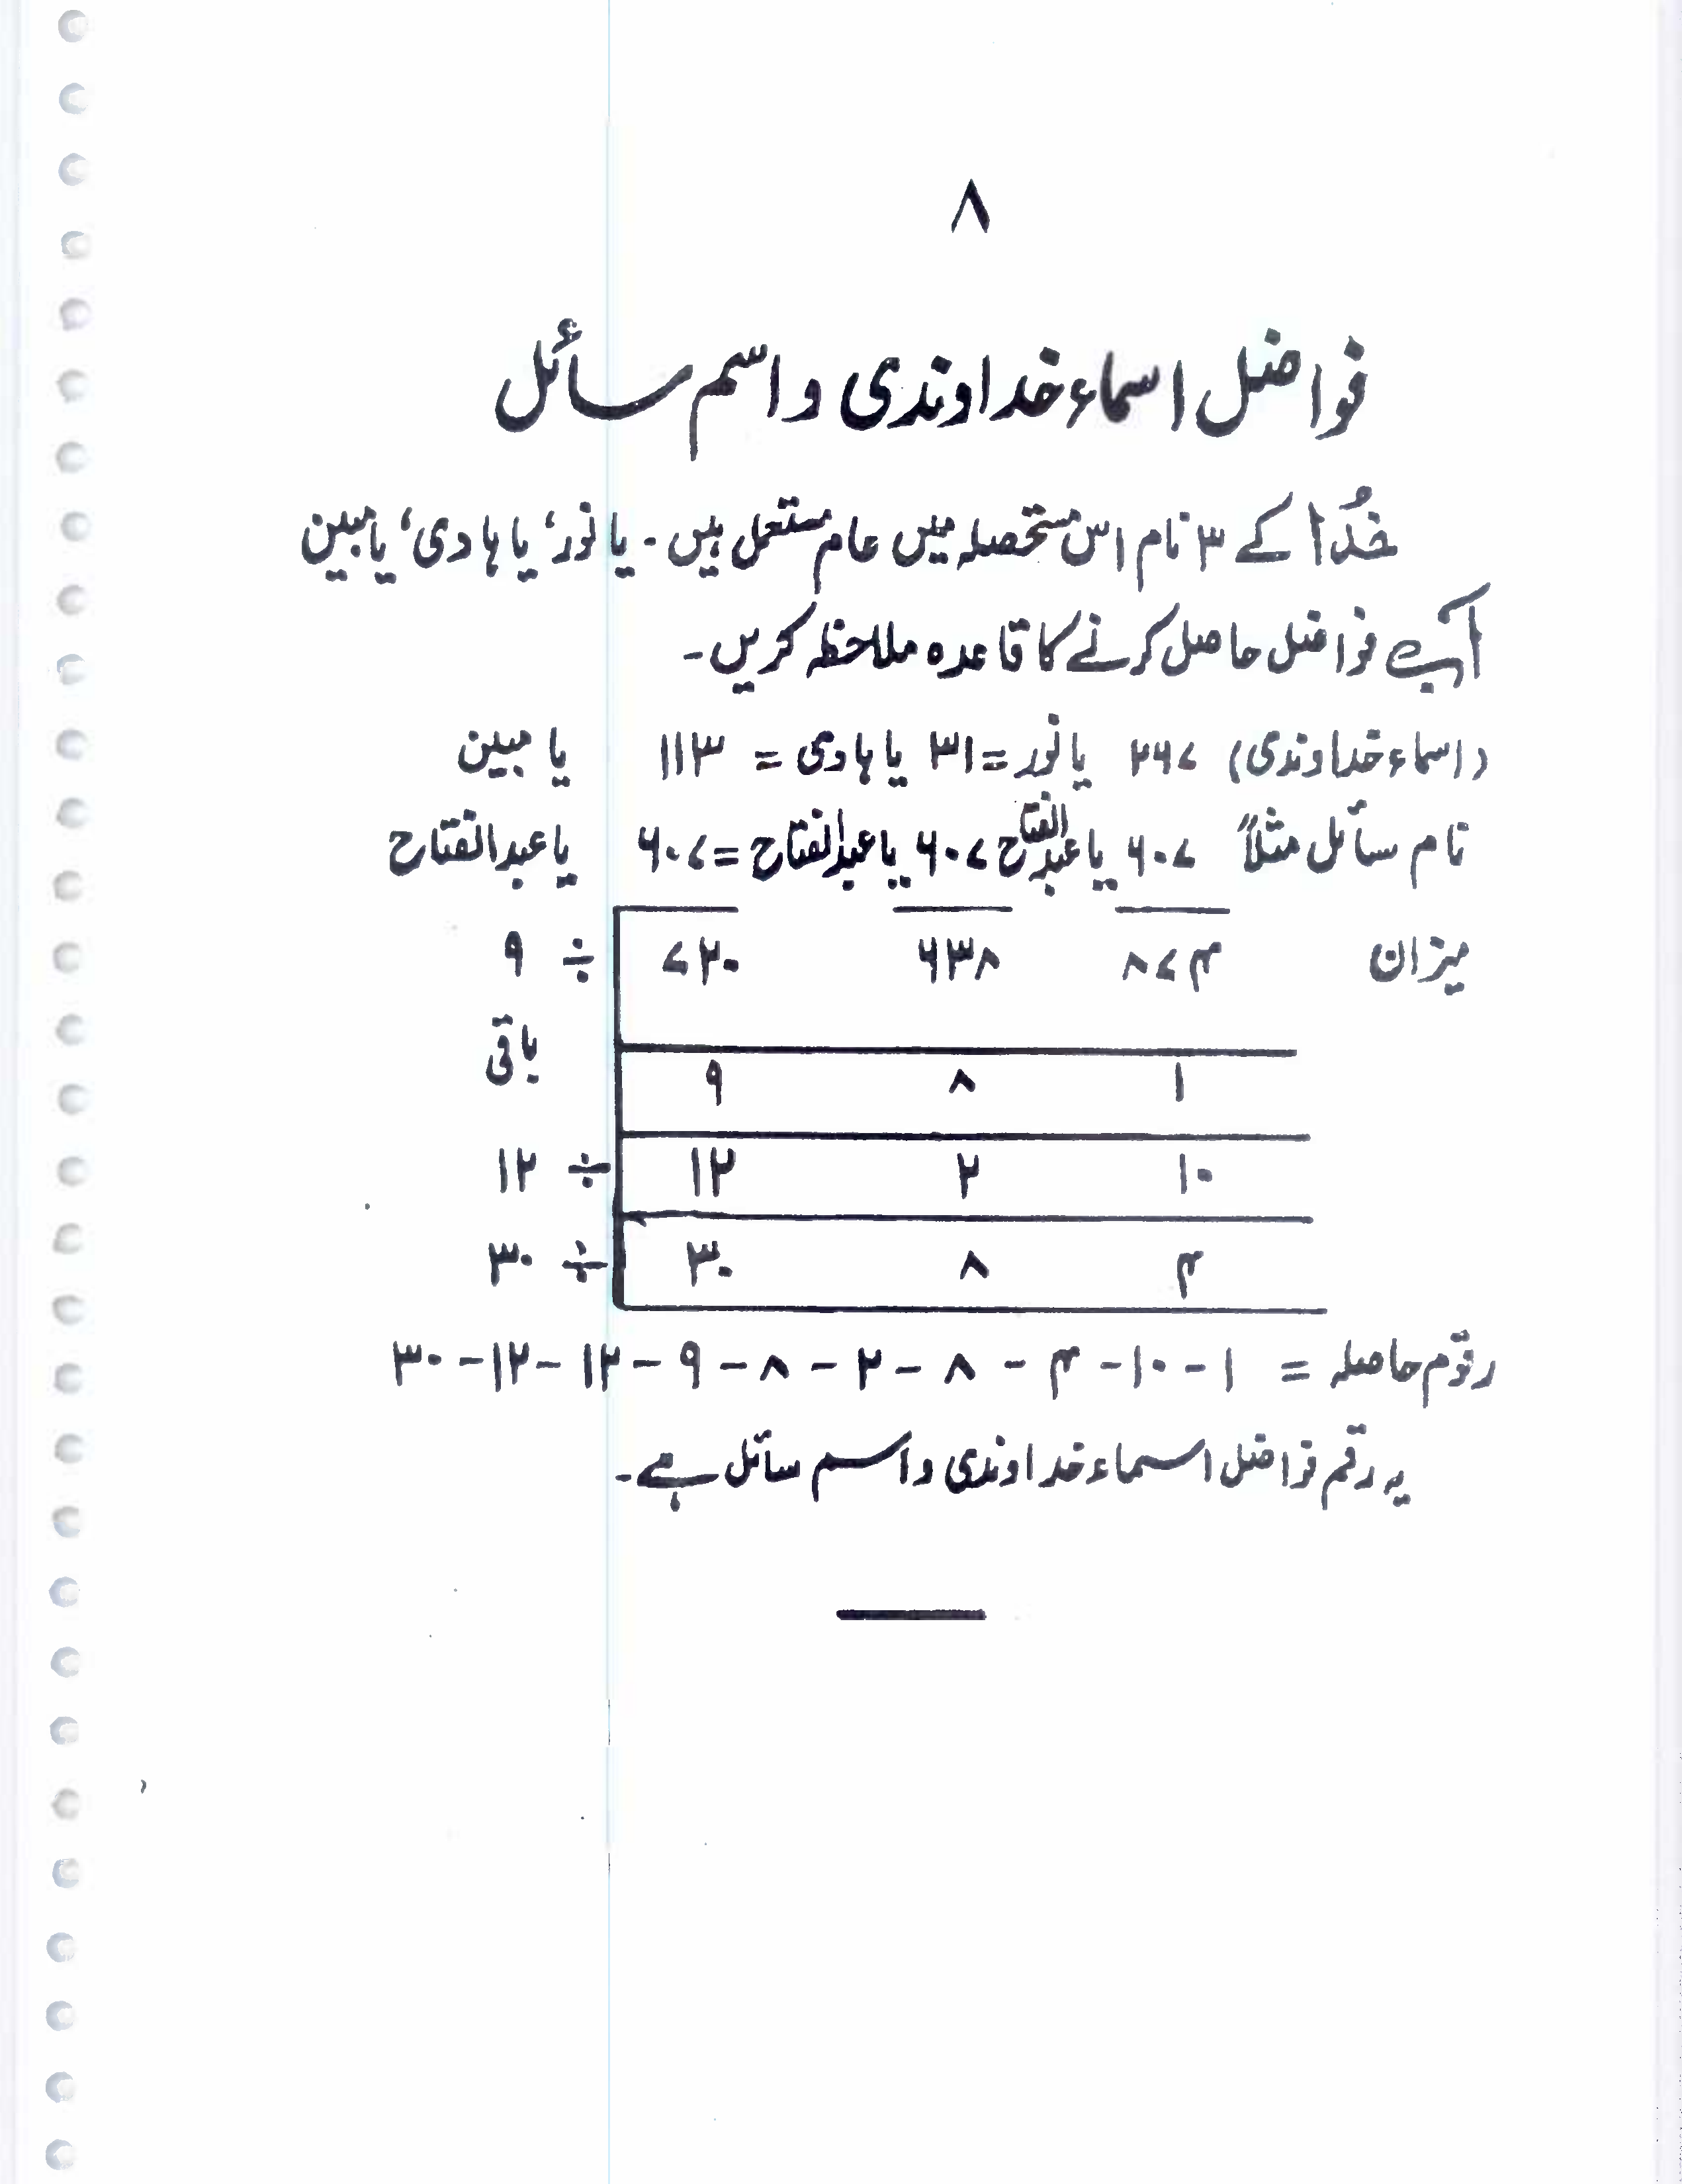 ۸
فواضل اسماء خداوندی و اسم سائل
خدُا کے ۳ نام اس مستحصلہ میں عام مستعمل ہیں۔ یا نور، یا ہادی، یا مبین
آپ فواضل حاصل کرنے کا قاعدہ ملاحظہ کریں۔
(اسماء خداوندی) ۲۶۷ یا نور = ۳۱ یا ہادی = ۱۱۳ یا مبین
نام سائل مثلاً ۶۰۷ یا عبدالفتاح ۶۰۷ یا عبدالفتاح = ۶۰۷ یا عبدالفتاح
میزان ۸۷۴ ۶۳۸ ۷۲۰ ÷ ۹
۱ ۸ ۹ باقی
۱۰ ۲ ۱۲ ÷ ۱۲
۴ ۸ ۳۰ ÷ ۳۰
رقوم حاصلہ = ۱ - ۱۰ - ۴ - ۸ - ۲ - ۸ - ۹ - ۱۲ - ۱۲ - ۳۰
یہ رقم فواضل اسماء خداوندی و اسم سائل ہے۔